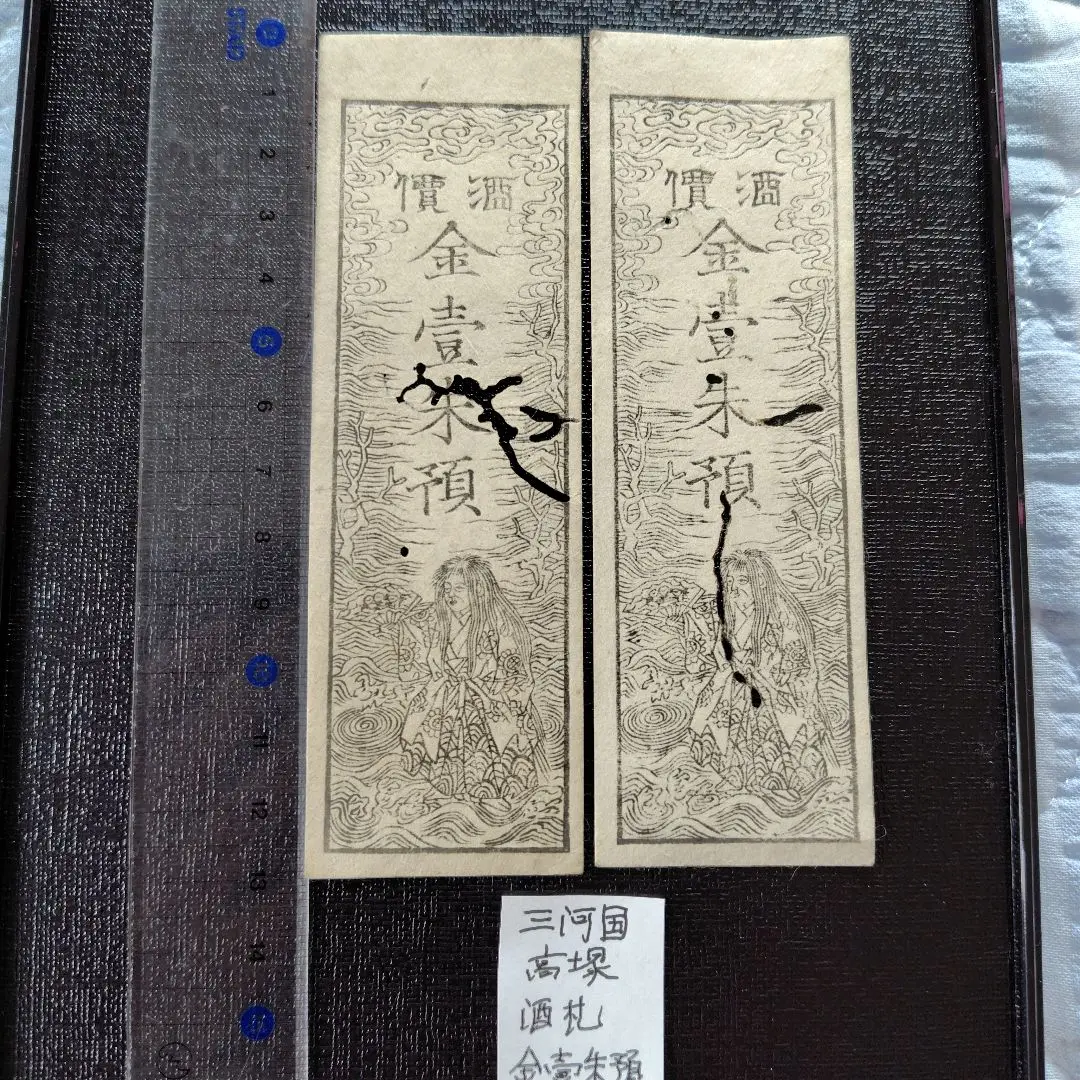 STAD
0 1 2 3 4 5 6 7 8 9 10 11 12 13 14 15
酒價
金壹朱預
酒價
金壹朱預
三河国
高塚
酒札
金壹朱預